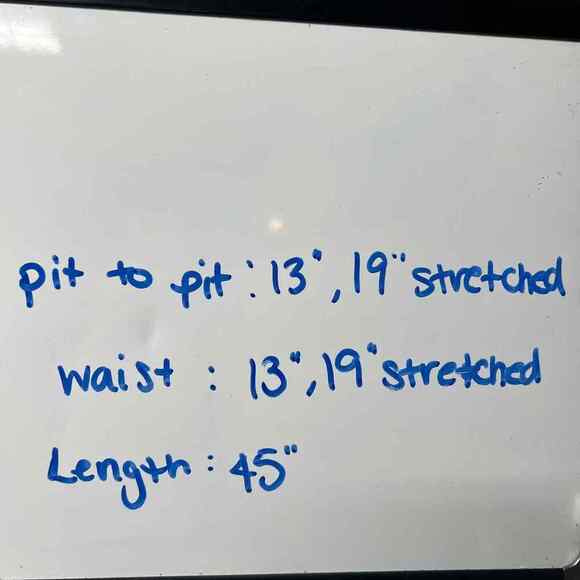 pit to pit : 13", 19" stretched
waist : 13", 19" stretched
Length : 45"